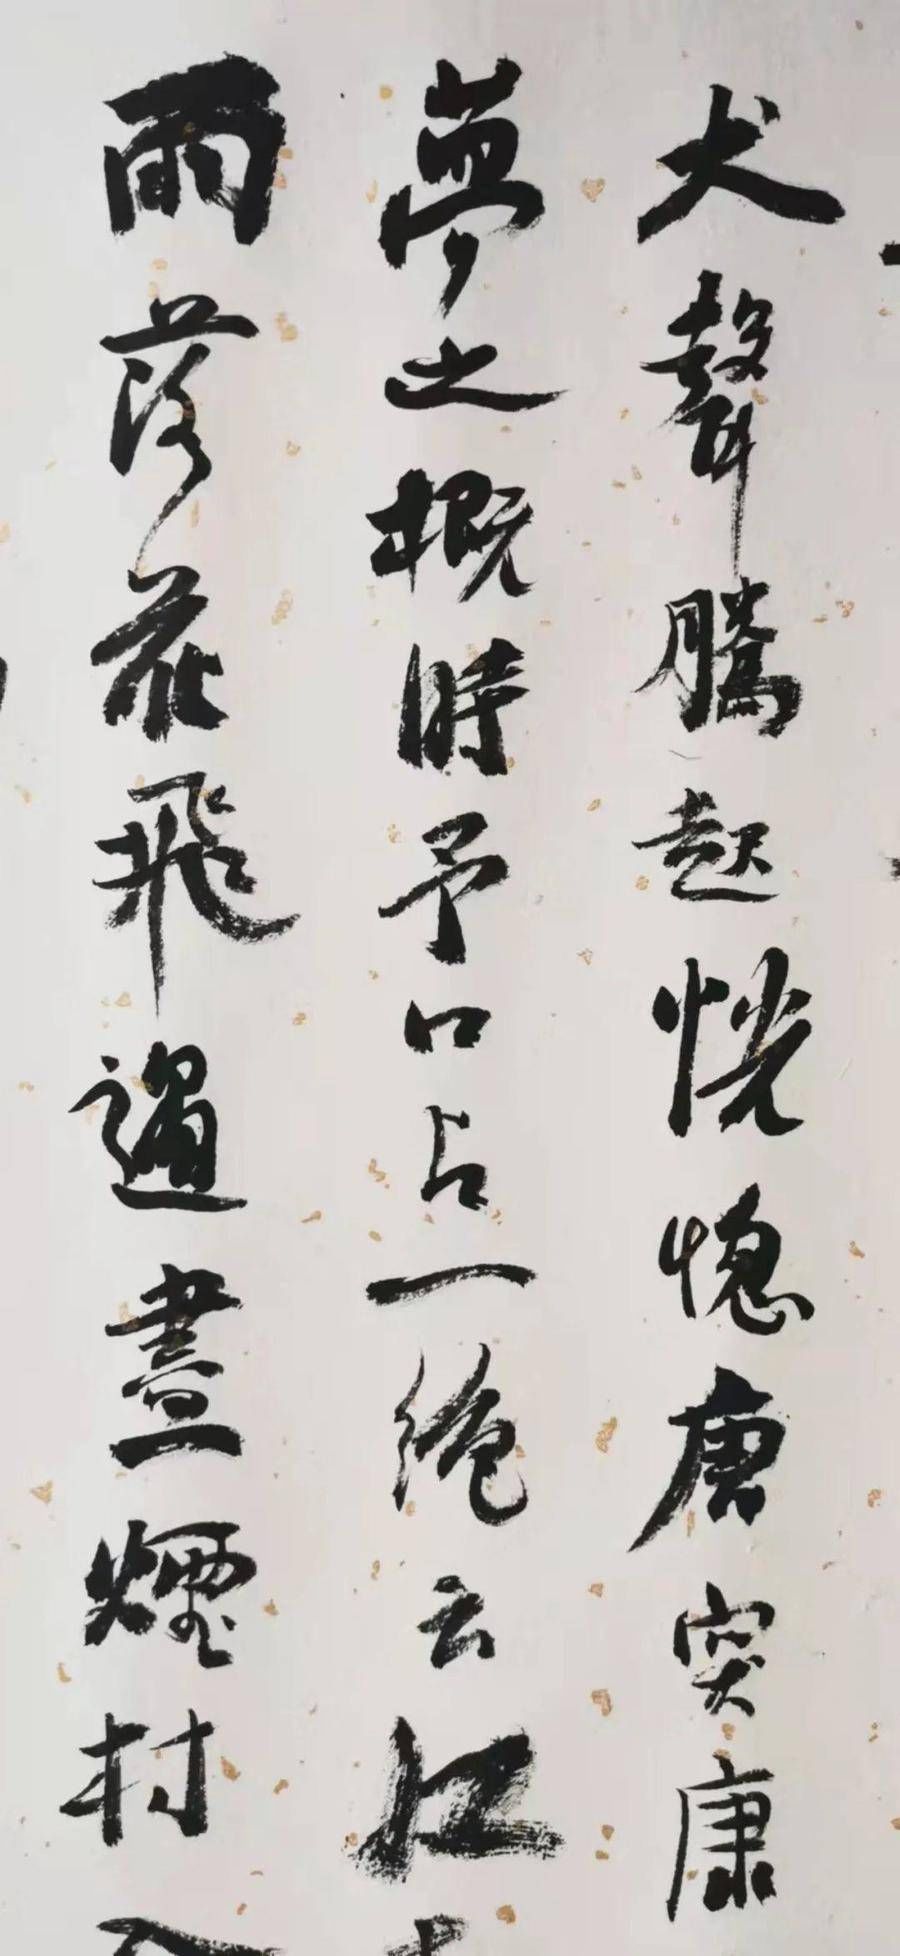 犬聲騰起恍惚唐突康
夢之概時予口占一絶云江
雨落花飛過晝煙村